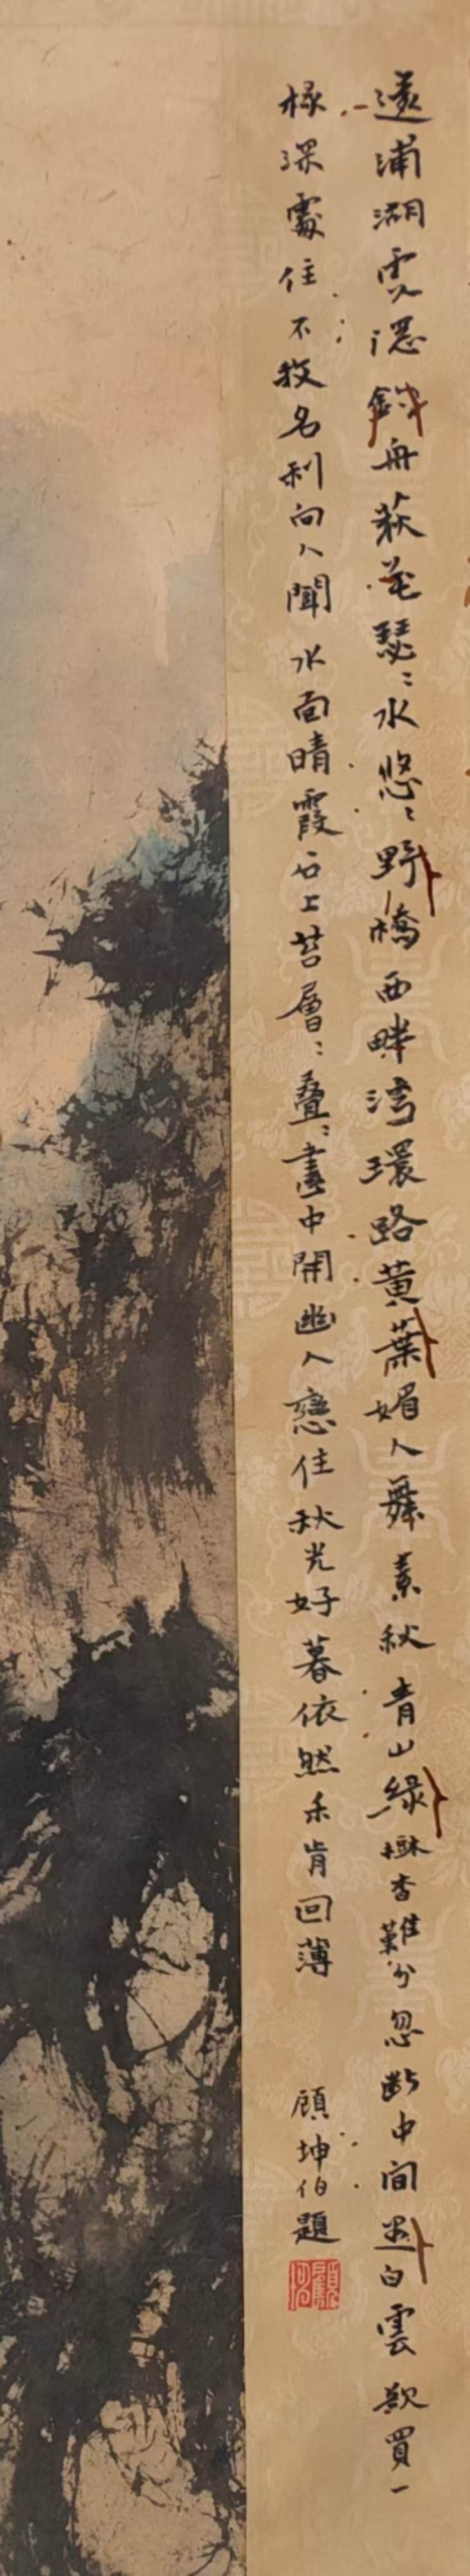 遠浦湖雲隱釣舟荻花瑟〻水悠〻野橋西畔灣環路黃葉媚人舞素秋青山綠杳難分忽斷中間白雲欲買一
椽深處住不教名利向人聞水面晴霞石上苔層〻疊〻畫中開幽人戀住秋光好暮依然未肯回薄
顧坤伯題